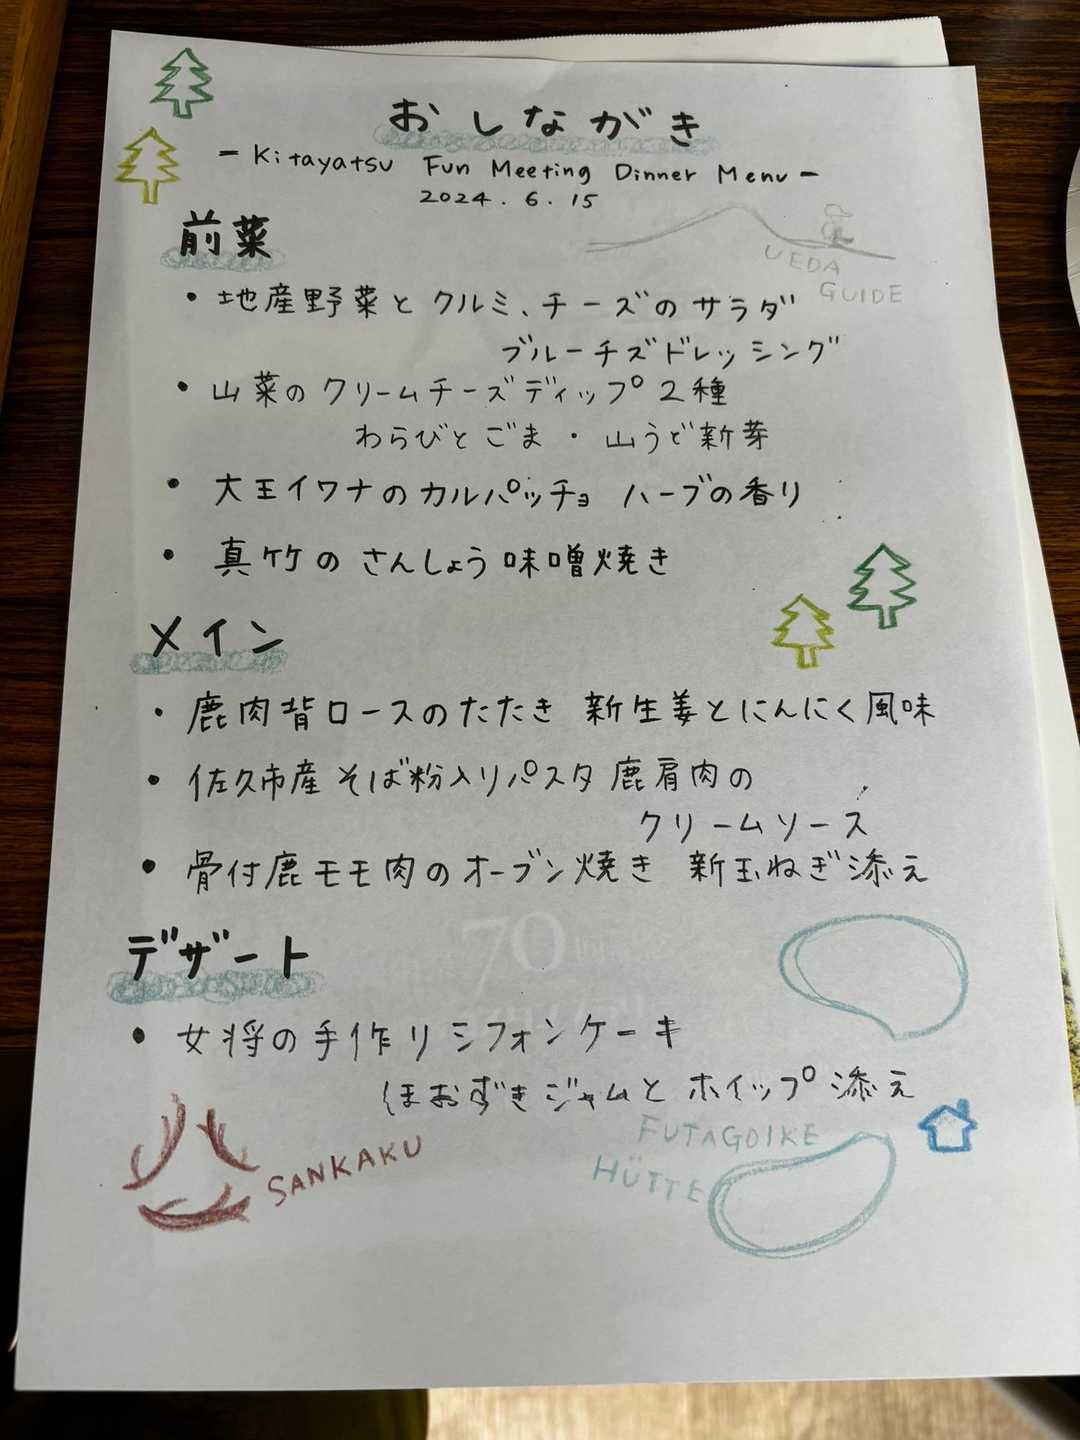 おしながき
－Kitayatsu Fun Meeting Dinner Menu－
2024.6.15
前菜
UEDA
GUIDE
・地産野菜とクルミ、チーズのサラダ
ブルーチズドレッシング
・山菜のクリームチーズディップ2種
わらびとごま・山うど新芽
・大王イワナのカルパッチョ ハーブの香り
・真竹のさんしょう味噌焼き
メイン
・鹿肉背ロースのたたき 新生姜とにんにく風味
・佐久市産そば粉入りパスタ鹿肩肉の
クリームソース
・骨付鹿モモ肉のオーブン焼き 新玉ねぎ添え
70
デザート
・女将の手作りシフォンケーキ
ほおずきジャムとホイップ添え
SANKAKU
FUTAGOIKE
HÜTTE